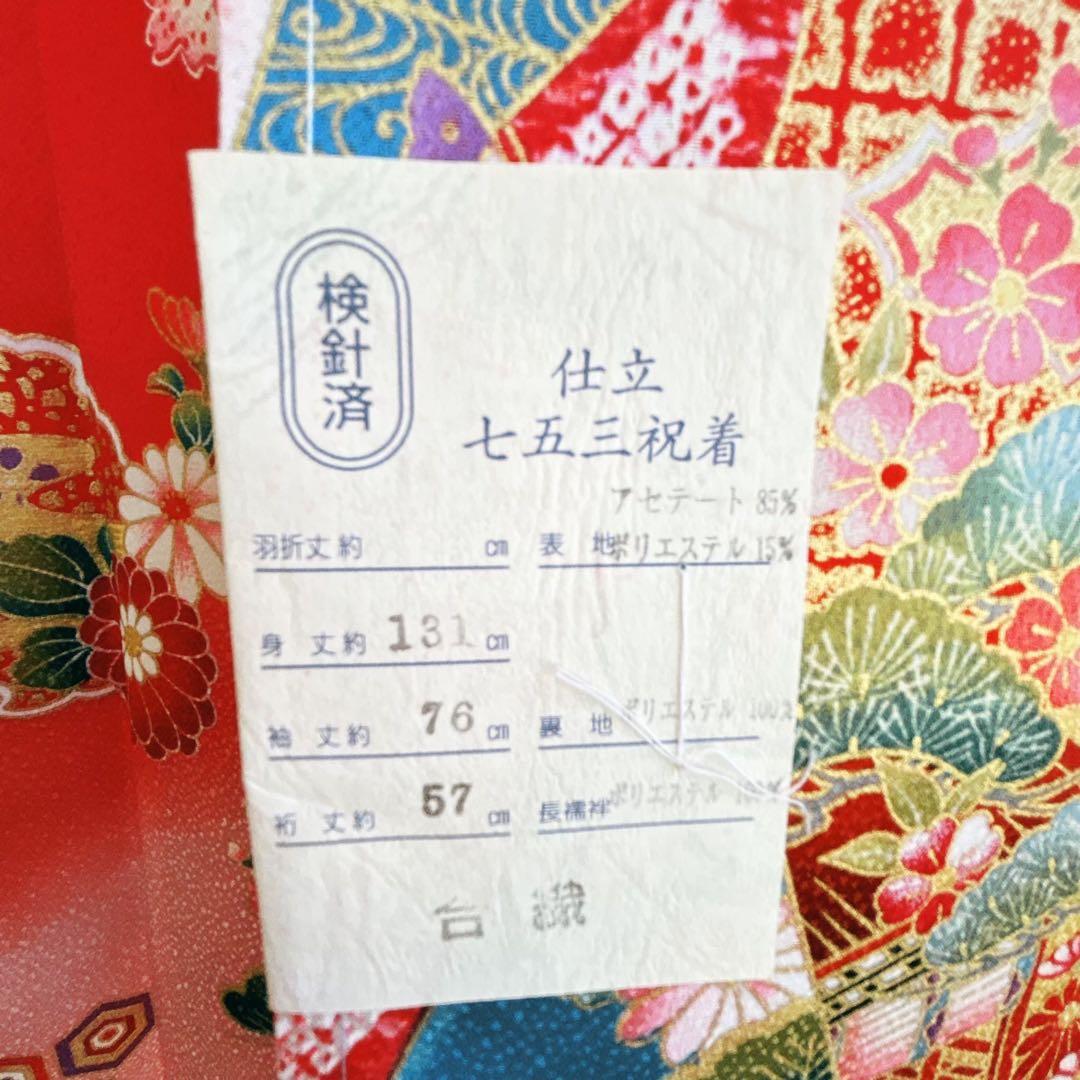 検針済
仕立
七五三祝着
アセテート 85%
羽折丈約 cm
表地 ポリエステル 15%
身丈約 131 cm
袖丈約 76 cm
裏地 ポリエステル 100%
裄丈約 57 cm
長襦袢 ポリエステル 100%
台 繊